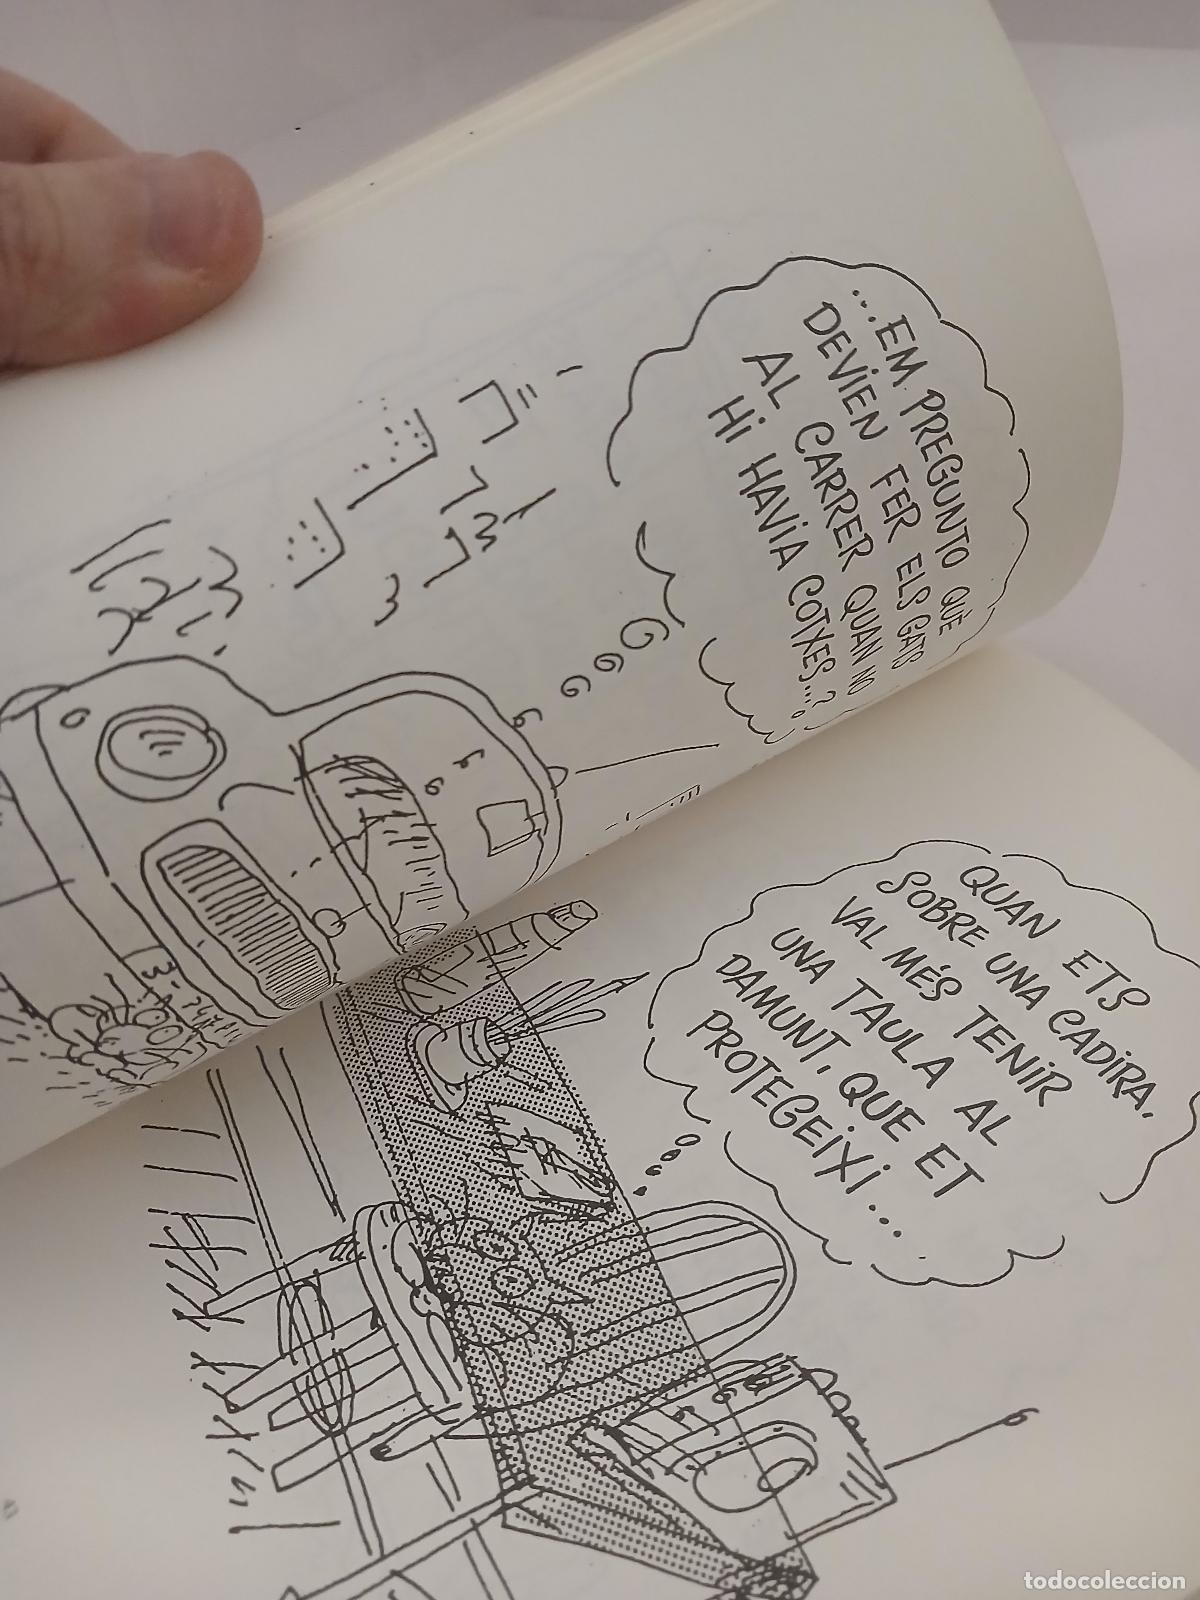 ...EM PREGUNTO QUÈ
DEVIEN FER ELS GATS
AL CARRER QUAN NO
HI HAVIA COTXES...?
QUAN ETS
SOBRE UNA CADIRA,
VAL MÉS TENIR
UNA TAULA AL
DAMUNT, QUE ET
PROTEGEIXI...
todocoleccion